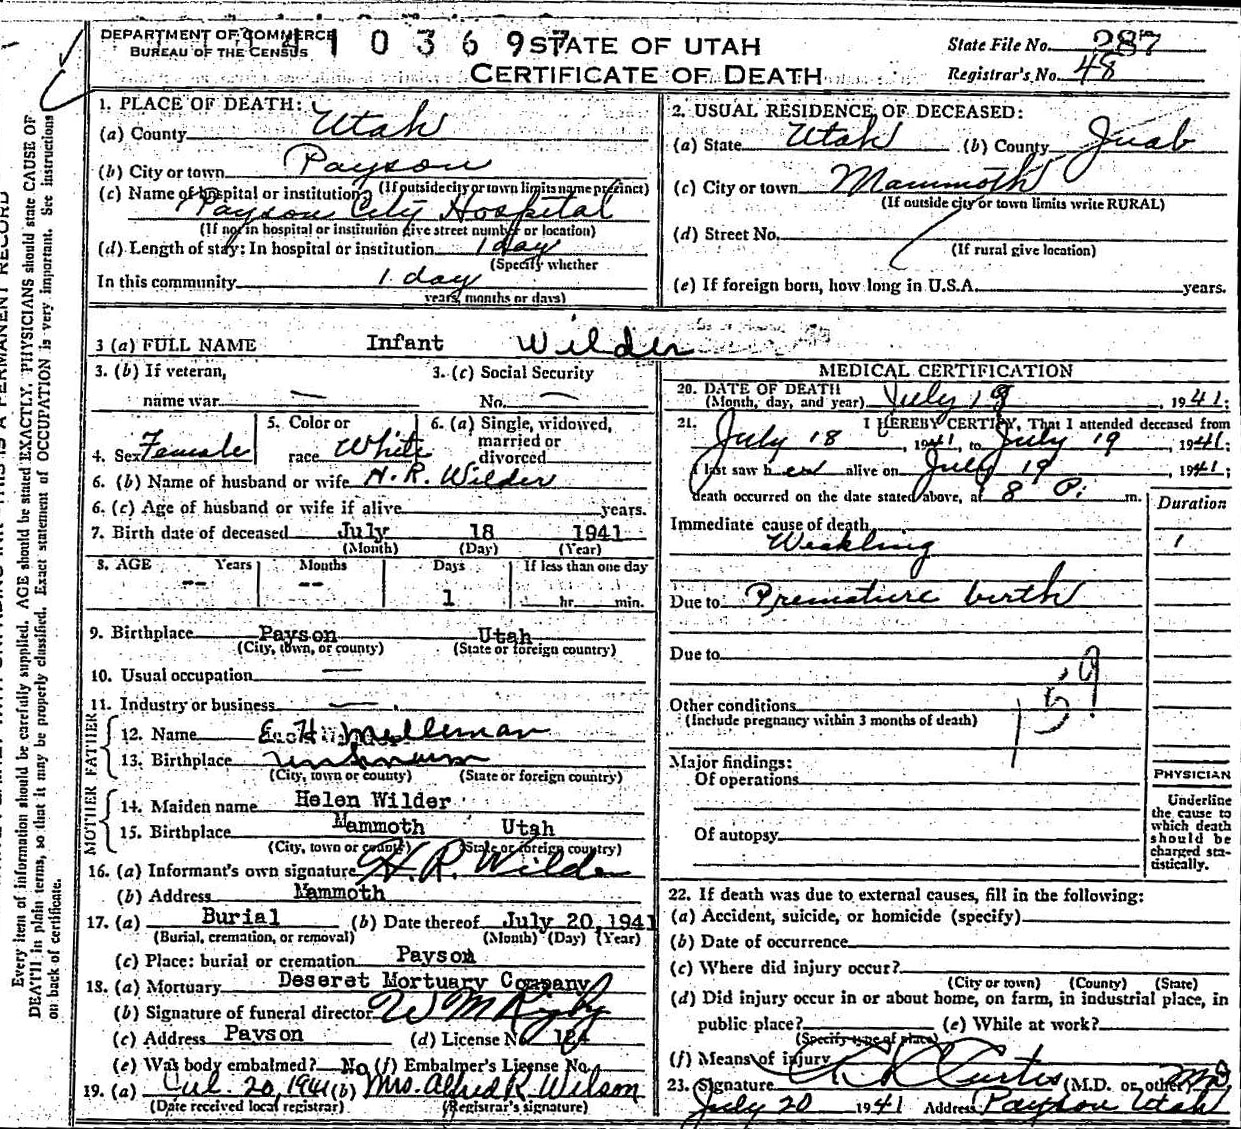 DEPARTMENT OF COMMERCE
BUREAU OF THE CENSUS
STATE OF UTAH
CERTIFICATE OF DEATH
State File No. 287
Registrar's No. 48
1. PLACE OF DEATH:
(a) County Utah
(b) City or town Payson
(If outside city or town limits name precinct)
(c) Name of hospital or institution:
Payson City Hospital
(If not in hospital or institution give street number or location)
(d) Length of stay: In hospital or institution 1 day
(Specify whether
In this community 1 day
years, months or days)
2. USUAL RESIDENCE OF DECEASED:
(a) State Utah (b) County Juab
(c) City or town Mammoth
(If outside city or town limits write RURAL)
(d) Street No.
(If rural give location)
(e) If foreign born, how long in U.S.A. years.
3 (a) FULL NAME Infant Wilder
3. (b) If veteran,
name war
3. (c) Social Security
No.
4. Sex Female
5. Color or
race White
6. (a) Single, widowed,
married or
divorced
6. (b) Name of husband or wife H. R. Wilder
6. (c) Age of husband or wife if alive years.
7. Birth date of deceased July 18 1941
(Month) (Day) (Year)
8. AGE Years Months Days If less than one day
-- -- 1 hr. min.
9. Birthplace Payson Utah
(City, town, or county) (State or foreign country)
10. Usual occupation
11. Industry or business
FATHER
12. Name Melleman
13. Birthplace unknown
(City, town or county) (State or foreign country)
MOTHER
14. Maiden name Helen Wilder
15. Birthplace Mammoth Utah
(City, town or county) (State or foreign country)
16. (a) Informant's own signature H. R. Wilder
(b) Address Mammoth
17. (a) Burial (b) Date thereof July 20, 1941
(Burial, cremation, or removal) (Month) (Day) (Year)
(c) Place: burial or cremation Payson
18. (a) Mortuary Deseret Mortuary Company
(b) Signature of funeral director W M Rigby
(c) Address Payson (d) License No. 124
(e) Was body embalmed? No (f) Embalmer's License No.
19. (a) Jul. 20, 1941 (b) Mrs. Alfred R. Wilson
(Date received local registrar) (Registrar's signature)
MEDICAL CERTIFICATION
20. DATE OF DEATH
(Month, day, and year) July 19, 1941;
21. I HEREBY CERTIFY, That I attended deceased from
July 18, 1941, to July 19, 1941;
I last saw her alive on July 19, 1941;
death occurred on the date stated above, at 8 P. m.
Duration
Immediate cause of death
Weakling 1
Due to Premature birth
Due to
159
Other conditions
(Include pregnancy within 3 months of death)
Major findings:
Of operations
Of autopsy
PHYSICIAN
Underline
the cause to
which death
should be
charged sta-
tistically.
22. If death was due to external causes, fill in the following:
(a) Accident, suicide, or homicide (specify)
(b) Date of occurrence
(c) Where did injury occur?
(City or town) (County) (State)
(d) Did injury occur in or about home, on farm, in industrial place, in
public place? (e) While at work?
(Specify type of place)
(f) Means of injury
23. Signature Curtis (M.D. or other) MD
July 20 1941 Address Payson Utah
Every item of information should be carefully supplied. AGE should be stated EXACTLY. PHYSICIANS should state CAUSE OF
DEATH in plain terms, so that it may be properly classified. Exact statement of OCCUPATION is very important. See instructions
on back of certificate.